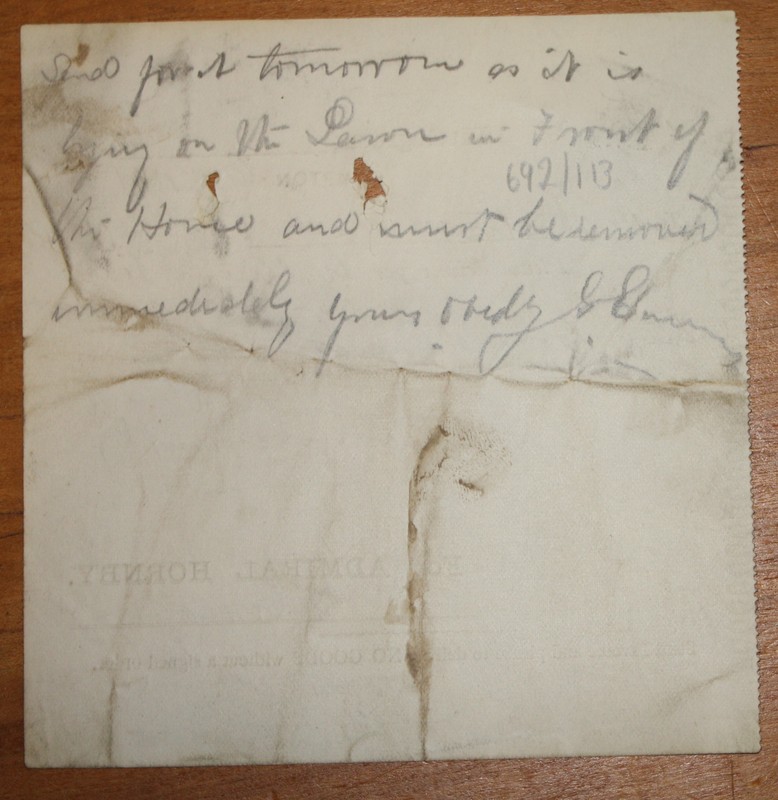 Send for it tomorrow as it is
lying on the Lawn in Front of
692/113
the House and must be removed
immediately yours obedly G
For ADMIRAL HORNBY.
NO GOODS without a signed order.